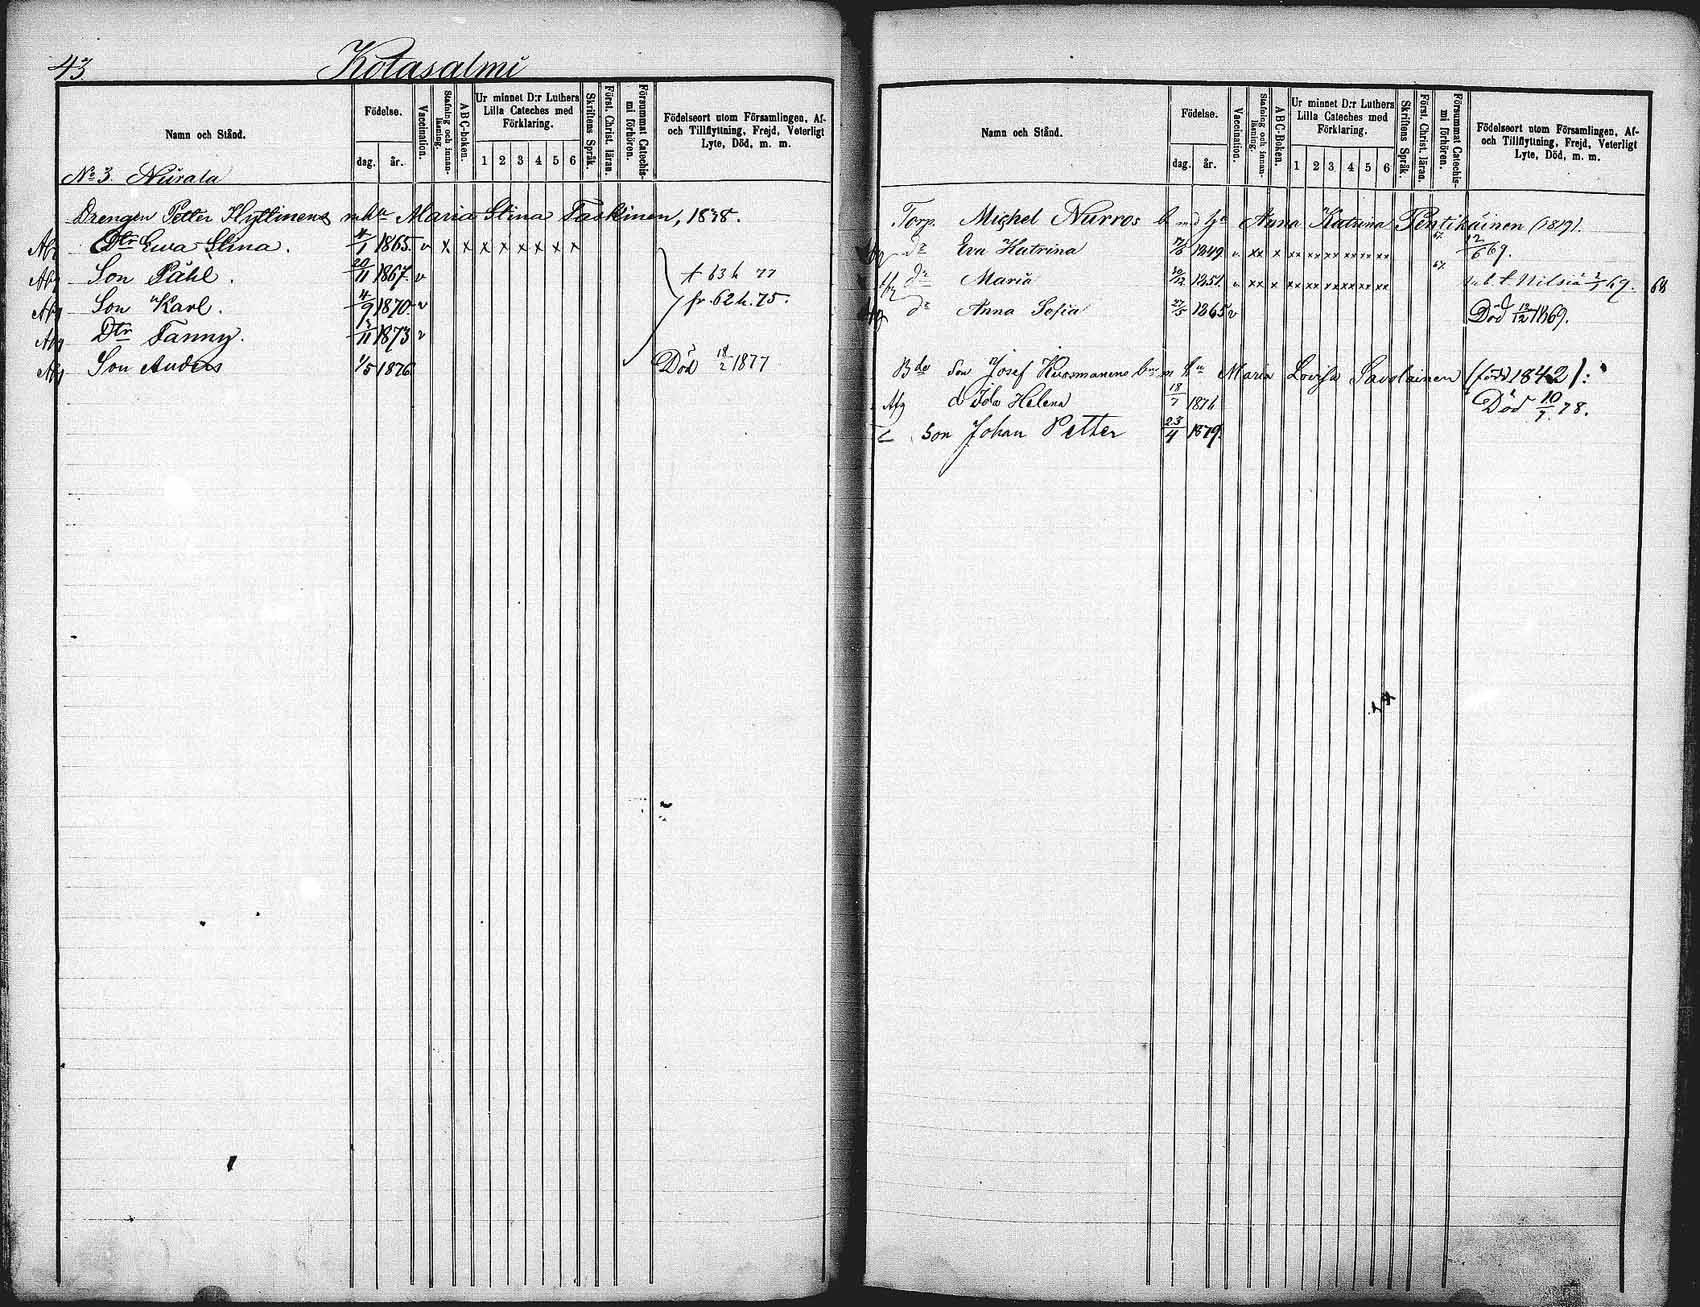 43 Kotasalmi
Namn och Stånd.
Födelse.
dag. år.
Vaccination.
Stafning och innanläsning.
ABC-boken.
Ur minnet D:r Luthers Lilla Cateches med Förklaring.
1 2 3 4 5 6
Skriftens Språk.
Först. Christ. läran.
Försummat Catechismi förhören.
Födelseort utom Församlingen, Af- och Tillflyttning, Frejd, Veterligt Lyte, Död, m. m.
No 3. Nurala
Drengen Petter Hyttinens m h:u Maria Stina Taskinen, 1838.
Afg Dtr Ewa Stina. 4/1 1865. v x x x x x x x x
Afg Son Påhl. 20/11 1867. v t 63 h 77
Afg Son Karl. 4/9 1870. v fr. 62 h. 75.
Afg Dtr Fanny. 12/11 1873 v
Afg Son Anders 1/5 1876 Död 18/2 1877
Namn och Stånd.
Födelse.
dag. år.
Vaccination.
Stafning och innanläsning.
ABC-Boken.
Ur minnet D:r Luthers Lilla Cateches med Förklaring.
1 2 3 4 5 6
Skriftens Språk.
Först. Christ. läran.
Försummat Catechismi förhören.
Födelseort utom Församlingen, Af- och Tillflyttning, Frejd, Veterligt Lyte, Död, m. m.
Torp. Michel Nurros b med h:u Anna Katrina Pentikäinen (1819).
Afg d:r Eva Katrina 1849 v xx x xx xx xx xx xx xx 67. 12/6 69.
Afg d:r Maria 1851 v xx x xx xx xx xx xx xx 67. t. Nilsiä 2/5 69. 68
Afg d:r Anna Sofia 27/5 1865 v Död 12/12 1869.
Bde Son Josef Kuosmanens m h:u Maria Lovisa Savolainen (född 1842):
Afg d Ida Helena 18/7 1876 Död 10/7. 78.
Son Johan Petter 23/4 1879.